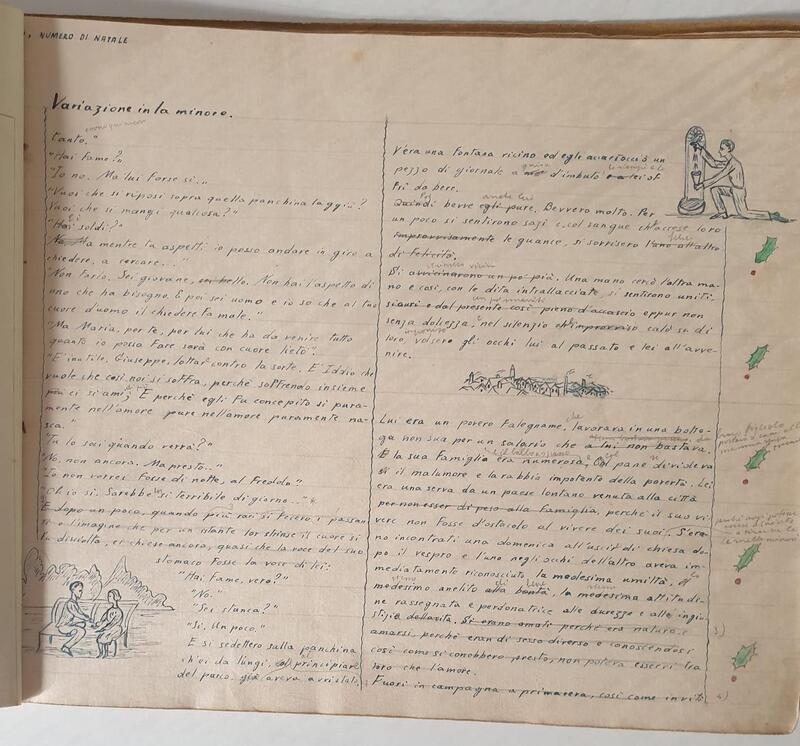 NUMERO DI NATALE
Variazione in la minore.
tanto."
"Hai fame?"
"Io no. Ma lui forse sì...
"Vuoi che si riposi sopra quella panchina laggiù?
Vuoi che si mangi qualcosa?"
"Hai soldi?"
Ma mentre tu aspetti io posso andare in giro a
chiedere, a cercare..."
"Non farlo. Sei giovane, sei bello. Non hai l'aspetto di
uno che ha bisogno. E poi sei uomo e io so che al tuo
cuore d'uomo il chiedere fa male."
"Ma Maria, per te, per lui che ha da venire tutto
quanto io posso fare sarà con cuore lieto".
"E' inutile, Giuseppe, lottar contro la sorte. E' Iddio che
vuole che così noi si soffra, perchè soffrendo insieme
più ci si ami. E perchè egli fu concepito sì pura-
mente nell'amore pure nell'amore puramente na-
sca."
"Tu lo sai quando verrà?"
"No, non ancora. Ma presto.."
"Io non vorrei fosse di notte, al freddo"
"Oh io sì. Sarebbe sì terribile di giorno.."
E dopo un poco, quando più rari si fecero i passan
ti e l'imagine che per un istante lor strinse il cuore si
fu dissolta, ei chiese ancora, quasi che la voce del suo
stomaco fosse la voce di lei:
"Hai fame, vero?"
"No."
"Sei stanca?"
"Sì. Un poco."
E si sedettero sulla panchina
ch'ei da lungi, al principiare
del parco, già aveva avvistata.
V'era una fontana vicino ed egli accartocciò un
pezzo di giornale a mo' d'imbuto e a lei of
frì da bere.
Quindi bevve egli pure. Bevvero molto. Per
un poco si sentirono sazi e col sangue ch'accese loro
improvvisamente le guance, si sorrisero l'uno all'altro
di felicità.
Si avvicinarono un po' più. Una mano cercò l'altra ma-
no e così, con le dita intrallacciate, si sentirono uniti,
sicuri e dal presente così pieno d'accascio eppur non
senza dolcezza, nel silenzio ch'improvviso calò su di
loro, volsero gli occhi lui al passato e lei all'avve-
nire.
Lui era un povero falegname, lavorava in una botte-
ga non sua per un salario che a lui non bastava.
E la sua famiglia era numerosa, Col pane divideva
il malumore e la rabbia impotente della povertà. Lei
era una serva da un paese lontano venuta alla città
per non esser di peso alla famiglia, perchè il suo vi-
vere non fosse d'ostacolo al vivere dei suoi. S'era-
no incontrati una domenica all'uscir di chiesa do-
po il vespro e l'uno negli occhi dell'altro aveva im-
mediatamente riconosciuto la medesima umiltà, il
medesimo anelito alla bontà, la medesima attitudi-
ne rassegnata e perdonatrice alle durezze e alle ingiu-
stizie della vita. Si erano amati perchè era natura
amarsi, perchè eran di sesso diverso e conoscendosi
così come si conobbero presto, non poteva esservi tra
loro che l'amore.
Fuori in campagna a primavera, così come invitò